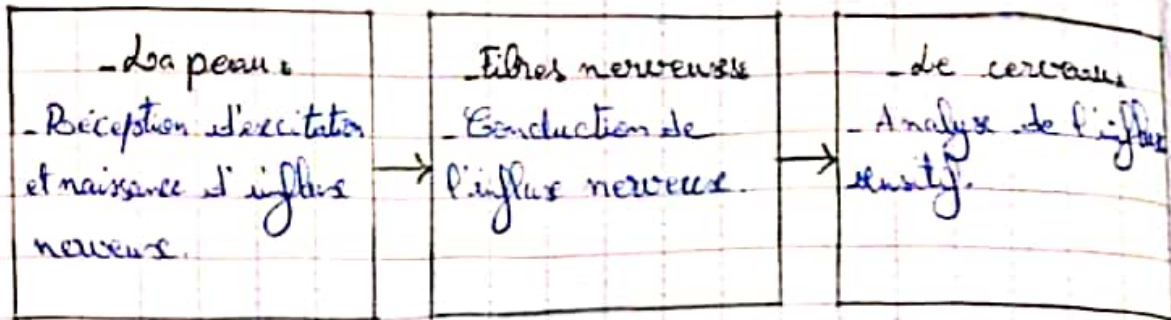 - La peau.
- Réception d'excitation
et naissance d'influx
nerveux.
- Fibres nerveuses
- Conduction de
l'influx nerveux.
- Le cerveau.
- Analyse de l'influx
sensitif.